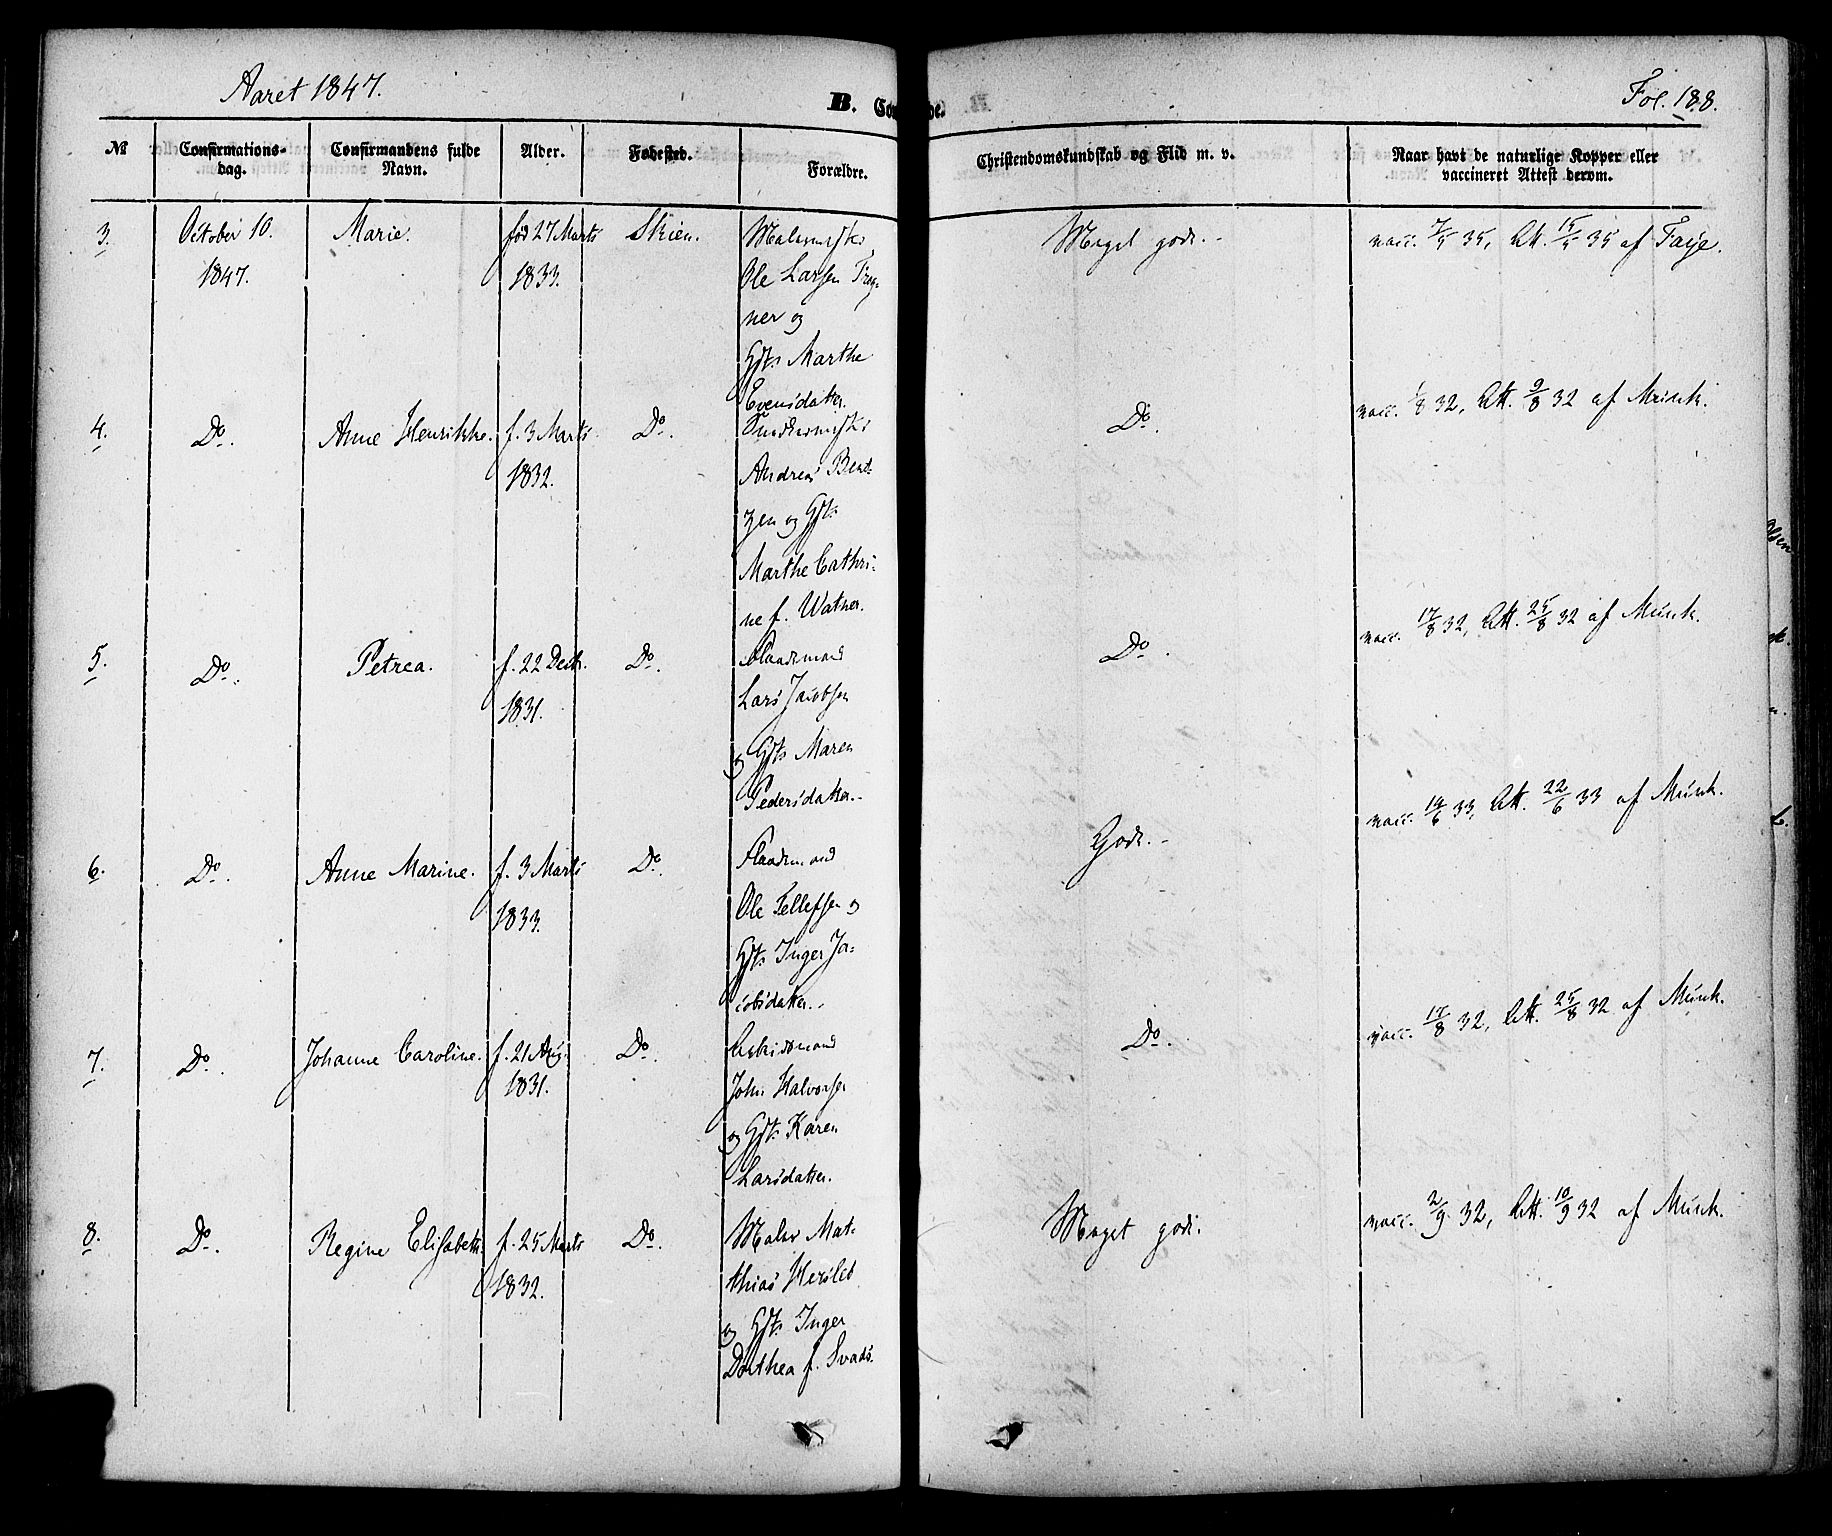 Aaret 1847.
B.
Fol. 188.
№
Confirmations-
dag.
Confirmandens fulde
Navn.
Alder.
Fødested.
Forældre.
Christendomskundskab og Flid m. v.
Naar havt de naturlige Kopper eller
vaccineret Attest derom.
3.
October 10.
1847.
Marie.
fød 27 Marts
1833.
Skien.
Ole Larsen
ner og
Gft. Marthe
Evensdatter.
Meget godt.
vacc. 7/5 35, Att. 15/5 35 af Faye.
4.
Do.
Anne Henrikke.
f. 3 Marts
1832.
Do.
Andreas Bent-
zen og Gft.
Marthe Cathri-
ne f.
Do.
vacc. 1/8 32, Att. 9/8 32 af Munk.
5.
Do.
Petrea.
f. 22 Decb.
1831.
Do.
Lars Jacobsen
og Gft. Maren
Pedersdatter.
Do.
vacc. 17/8 32, Att. 25/8 32 af Munk.
6.
Do.
Anne Marine.
f. 3 Marts
1833.
Do.
Ole Tellefsen og
Gft. Inger Ja-
cobsdatter.
Godt.
vacc. 14/6 33, Att. 22/6 33 af Munk.
7.
Do.
Johanne Caroline.
f. 21 Aug.
1831.
Do.
Arbeidsmand
John Halvorsen
og Gft. Karen
Larsdatter.
Do.
vacc. 17/8 32, Att. 25/8 32 af Munk.
8.
Do.
Regine Elisabeth.
f. 25 Marts
1832.
Do.
Maler Mat-
thias Hersleb
og Gft. Inger
Dorthea f.
Meget godt.
vacc. 2/9 32, Att. 10/9 32 af Munk.